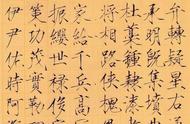 弁轉疑星右
承明既集墳
杜稾鍾隸漆
將相路俠槐
家給千兵高
振纓世祿侈
策功茂實勒
伊尹佐時阿